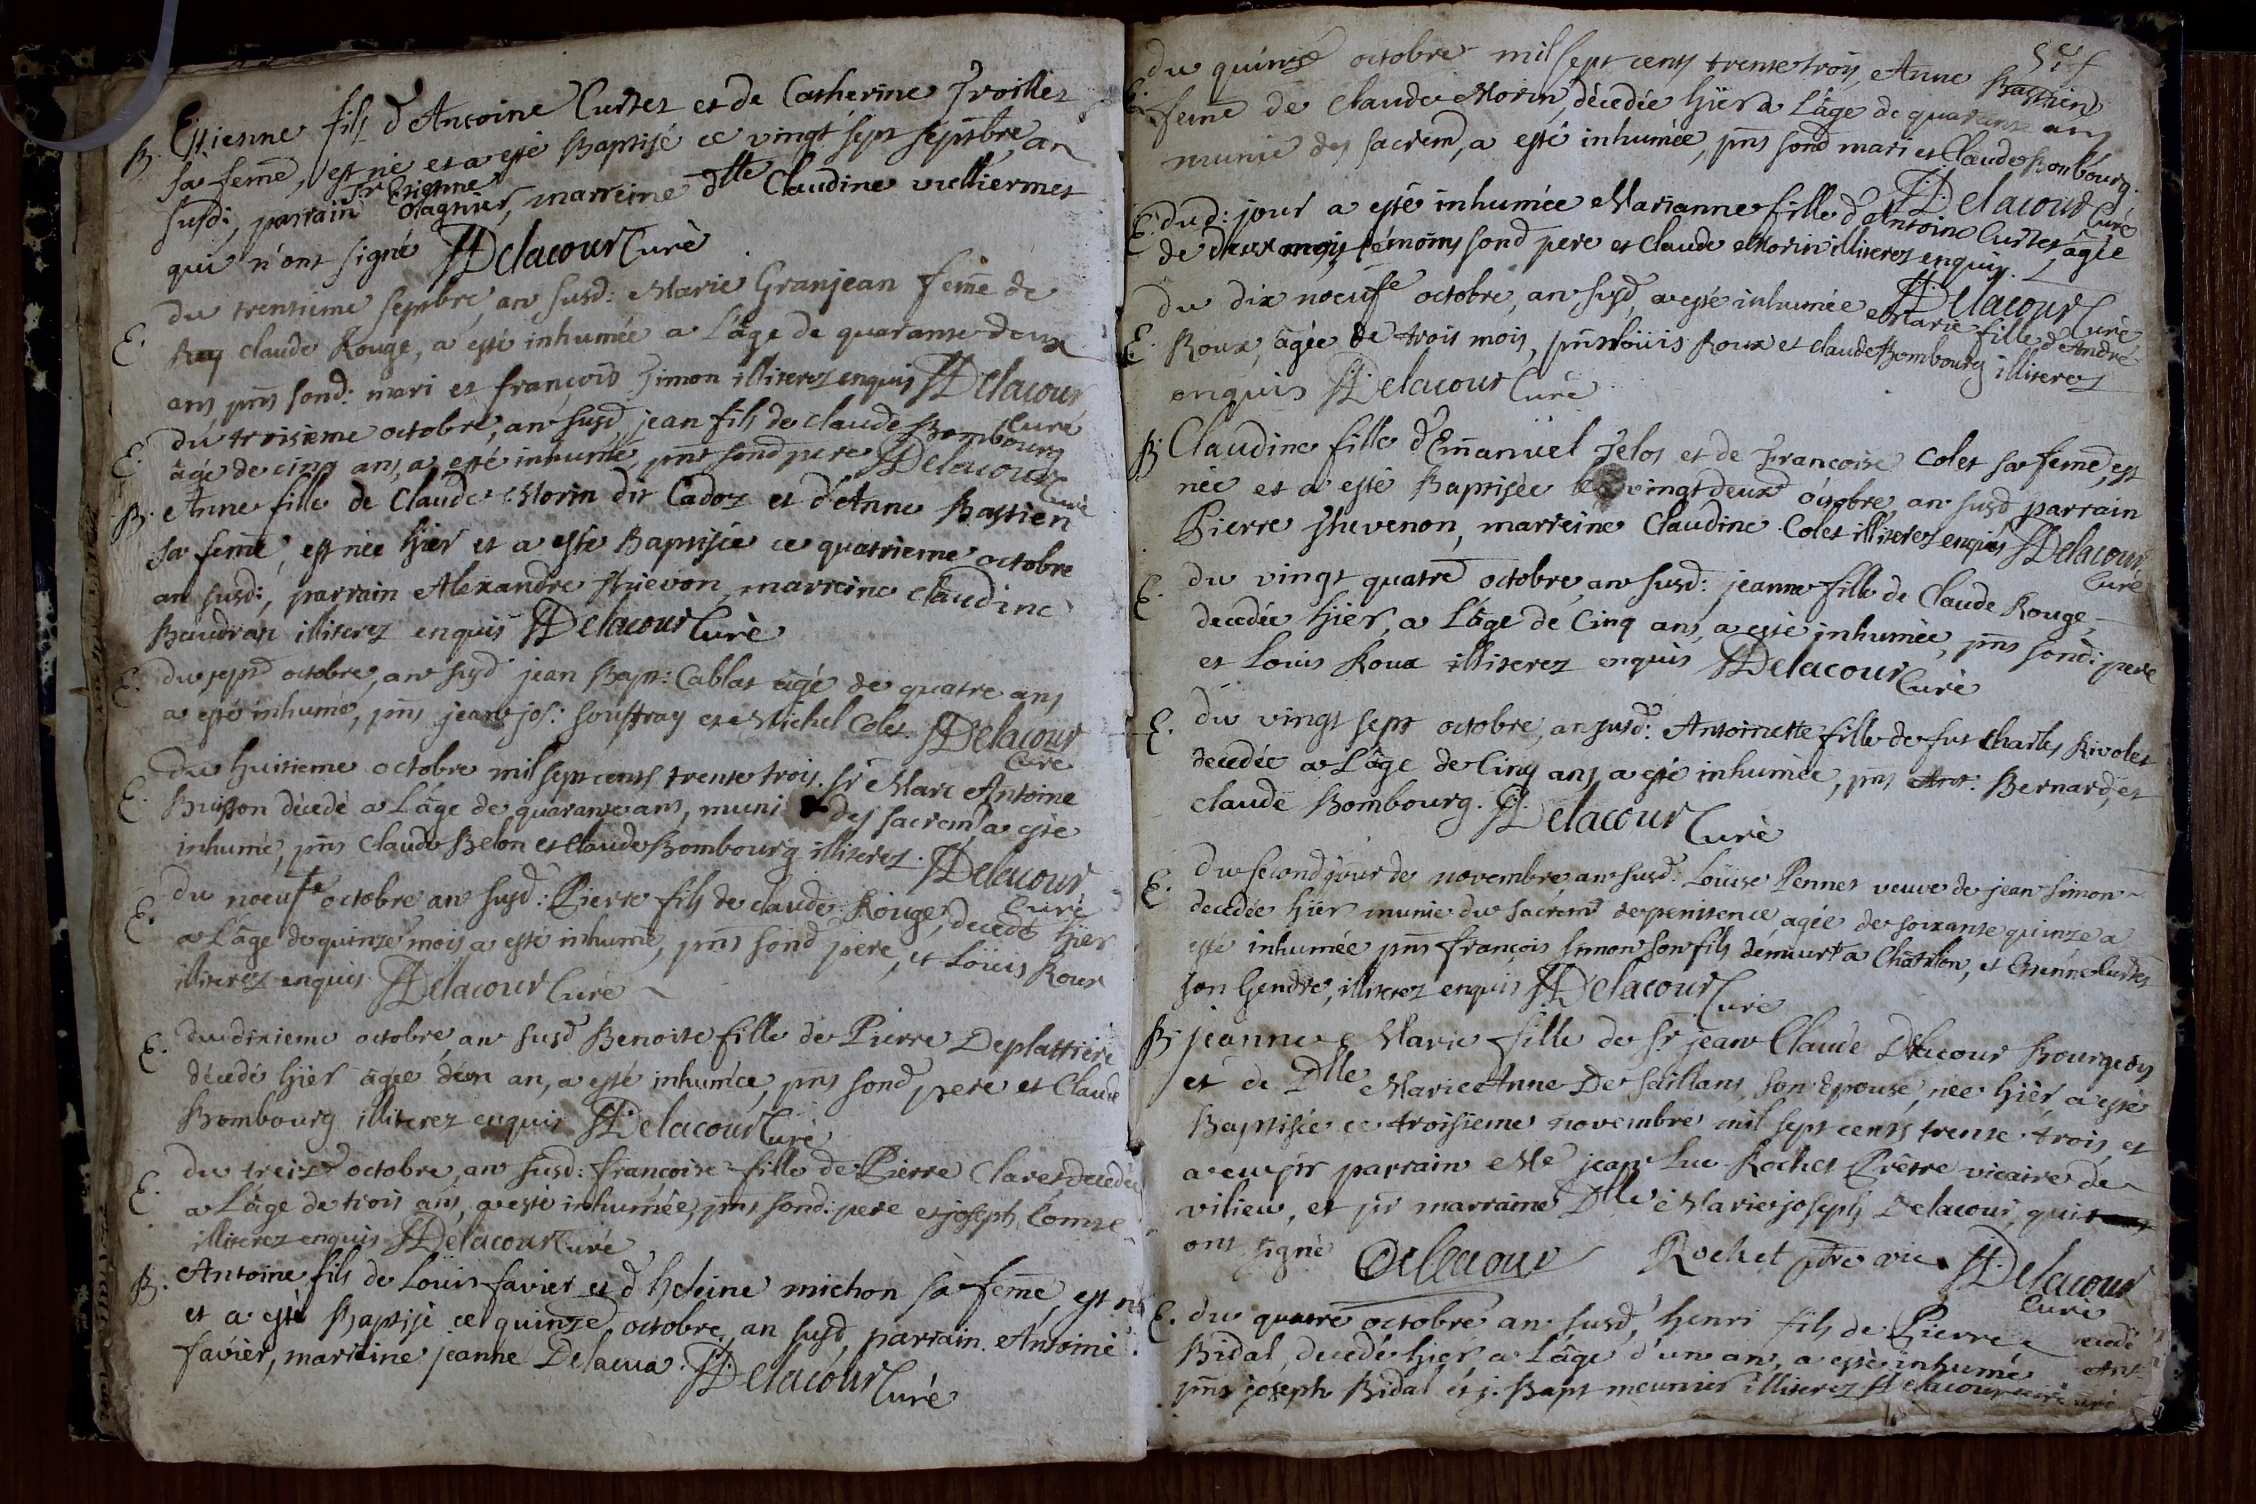 B. Estienne fils d'Antoine Curtet et de Catherine Troillet
sa feme, est né et a esté Baptisé ce vingt sept septbre an
susd: parrain Sr Etienne Ragnier, marreine dlle Claudine vulliermet
qui n'ont signé JDelacour Curé
E. du trentieme septbre, an susd: Marie Granjean feme de
Claude Rouge, a esté inhumée a L'âge de quarante deux
ans, pnts sond: mari et françois Simon illiterez enquis JDelacour
Curé
E. du troisieme octobre, an susd, jean fils de claude Bombourg
âgé de cinq ans, a esté inhumé, pnt sond pere JDelacour
Curé
B. Anne fille de Claude Morin dit Cadoz et d'Anne Bastien
sa feme, est née hier et a esté Baptisée ce quatrieme octobre
an susd:, parrain Alexandre Thievon, marreine Claudine
Baudran illiterez enquis JDelacour Curé
E. du sept octobre, an susd jean Bapt: Cablat âgé de quatre ans
a esté inhumé, pnts jean jos: souffray et Michel Colet. JDelacour
Curé
E. Du huitieme octobre mil sept cents trente trois Sr Marc Antoine
Buisson décedé a L'âge de quarante ans, muni des sacrem a esté
inhumé, pnts Claude Belon et Claude Bombourg illiterez. JDelacour
Curé
E. du noeufe octobre an susd: Pierre fils de claude Rouge, decedé hier
a L'âge de quinze mois a esté inhumé, pnts sond pere, et Loüis Roux
illiterez enquis JDelacour Curé
E. du dixieme octobre, an susd Benoite fille de Pierre Deplattiere
décedé hier âgée d'un an, a esté inhumée, pnts sond pere et Claude
Bombourg illiterez enquis JDelacour Curé
E. du treize octobre, an susd: francoise fille de Pierre Claret decedée
a L'âge de trois ans, a esté inhumée, pnts sond: pere et joseph Comte
illiterez enquis JDelacour Curé
B. Antoine fils de Loüis favier et d'heleine michon sa feme, est né
et a esté Baptisé ce quinze octobre, an susd, parrain Antoine
favier, marreine jeanne Delacua. JDelacour Curé
du quinze octobre mil sept cents trente trois, Anne Bastien
E. feme de Claude Morin, décedée hier a L'âge de quarante ans
munie des sacrem, a esté inhumée, pnts sond mari et Claude Bombourg.
JDelacour Curé
E. dud: jour a esté inhumée Marianne fille d'Antoine Curtet, âgée
de deux mois, témoins sond pere et Claude Morin illiterez enquis.
JDelacour Curé
E. du dix noeufe octobre, an susd, a esté inhumée Marie fille d'André
Roux, âgée de trois mois, pnts Loüis Roux et claude Bombourg illiterez
enquis JDelacour Curé
B. Claudine fille d'Emanüel Jelot et de Francoise Colet sa feme, est
née et a esté Baptisée le vingt deux octobre, an susd parrain
Pierre Thevenon, marreine Claudine Colet illiterez enquis JDelacour
Curé
E. du vingt quatre octobre, an susd: jeanne fille de Claude Rouge,
decedée hier, a L'âge de Cinq ans, a esté inhumée, pnts sond: pere
et Louis Roux illiterez enquis JDelacour Curé
E. du vingt sept octobre, an susd: Antoinette fille de fut Charles Rivolet
decedée a L'âge de Cinq ans, a esté inhumée, pnts Ant: Bernard, et
claude Bombourg. JDelacour Curé
E. Du second jour de novembre an susd: Loüise Pennet veuve de jean Simon
decedée hier munie du sacrem de penitence, agée de soixante quinze a
esté inhumée pnts françois Simon son fils demeurt a Châtillon, et Etienne Curtet
son Gendre, illiterez enquis JDelacour Curé
B. jeanne Marie fille de Sr jean Claude Delacour Bourgeois
et de Dlle Marie Anne De Saillans, son Epouse, née hier, a esté
Baptisée ce troisieme novembre mil sept cents trente trois, et
a eu pr parrain Me jean Luc Rochet Prêtre vicaire de
vilieu, et pr marraine Dlle Marie joseph Delacour, qui
ont signé Delacour Rochet ptre vic. JDelacour
Curé
E. du quatre octobre an susd, henri fils de Pierre
Bidal, decedé hier, a L'âge d'un an, a esté inhumé
pnts joseph Bidal et j: Bapt meunier illiterez JDelacour curé